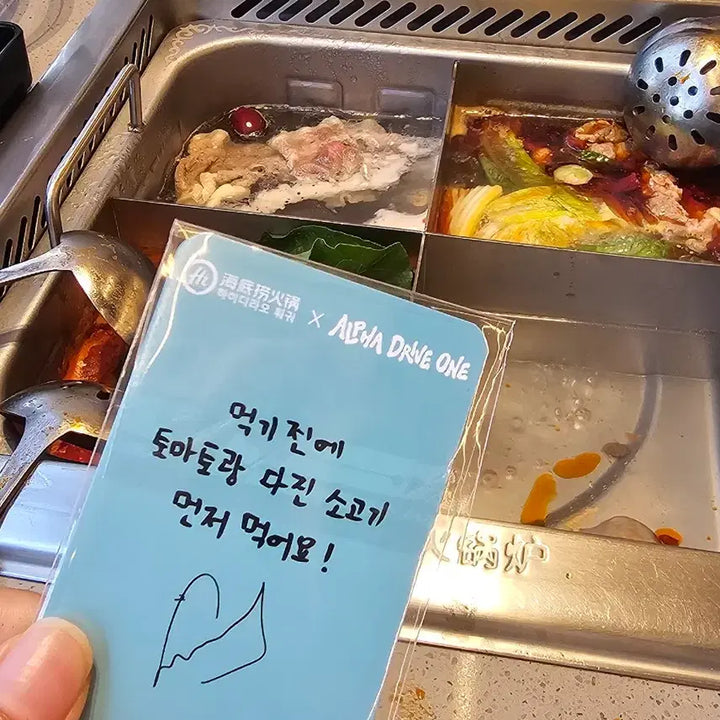 Hi 海底捞火锅
하이디라오 훠궈
× ALPHA DRIVE ONE
먹기 전에
토마토랑 다진 소고기
먼저 먹어요!
锅炉